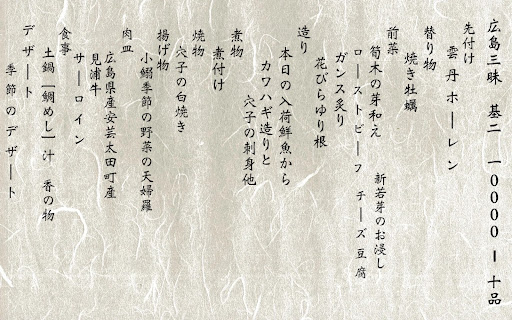 広島三昧 基二 一００００ー 十品
先付け
雲丹ホーレン
替り物
焼き牡蠣
前菜
筍木の芽和え 新若芽のお浸し
ローストビーフ チーズ豆腐
ガンス炙り
花びらゆり根
造り
本日の入荷鮮魚から
カワハギ造りと
穴子の刺身他
煮物
煮付け
焼物
穴子の白焼き
揚げ物
小鰯季節の野菜の天婦羅
肉皿
広島県産安芸太田町産
見浦牛
サーロイン
食事
土鍋「鯛めし」汁 香の物
デザート
季節のデザート